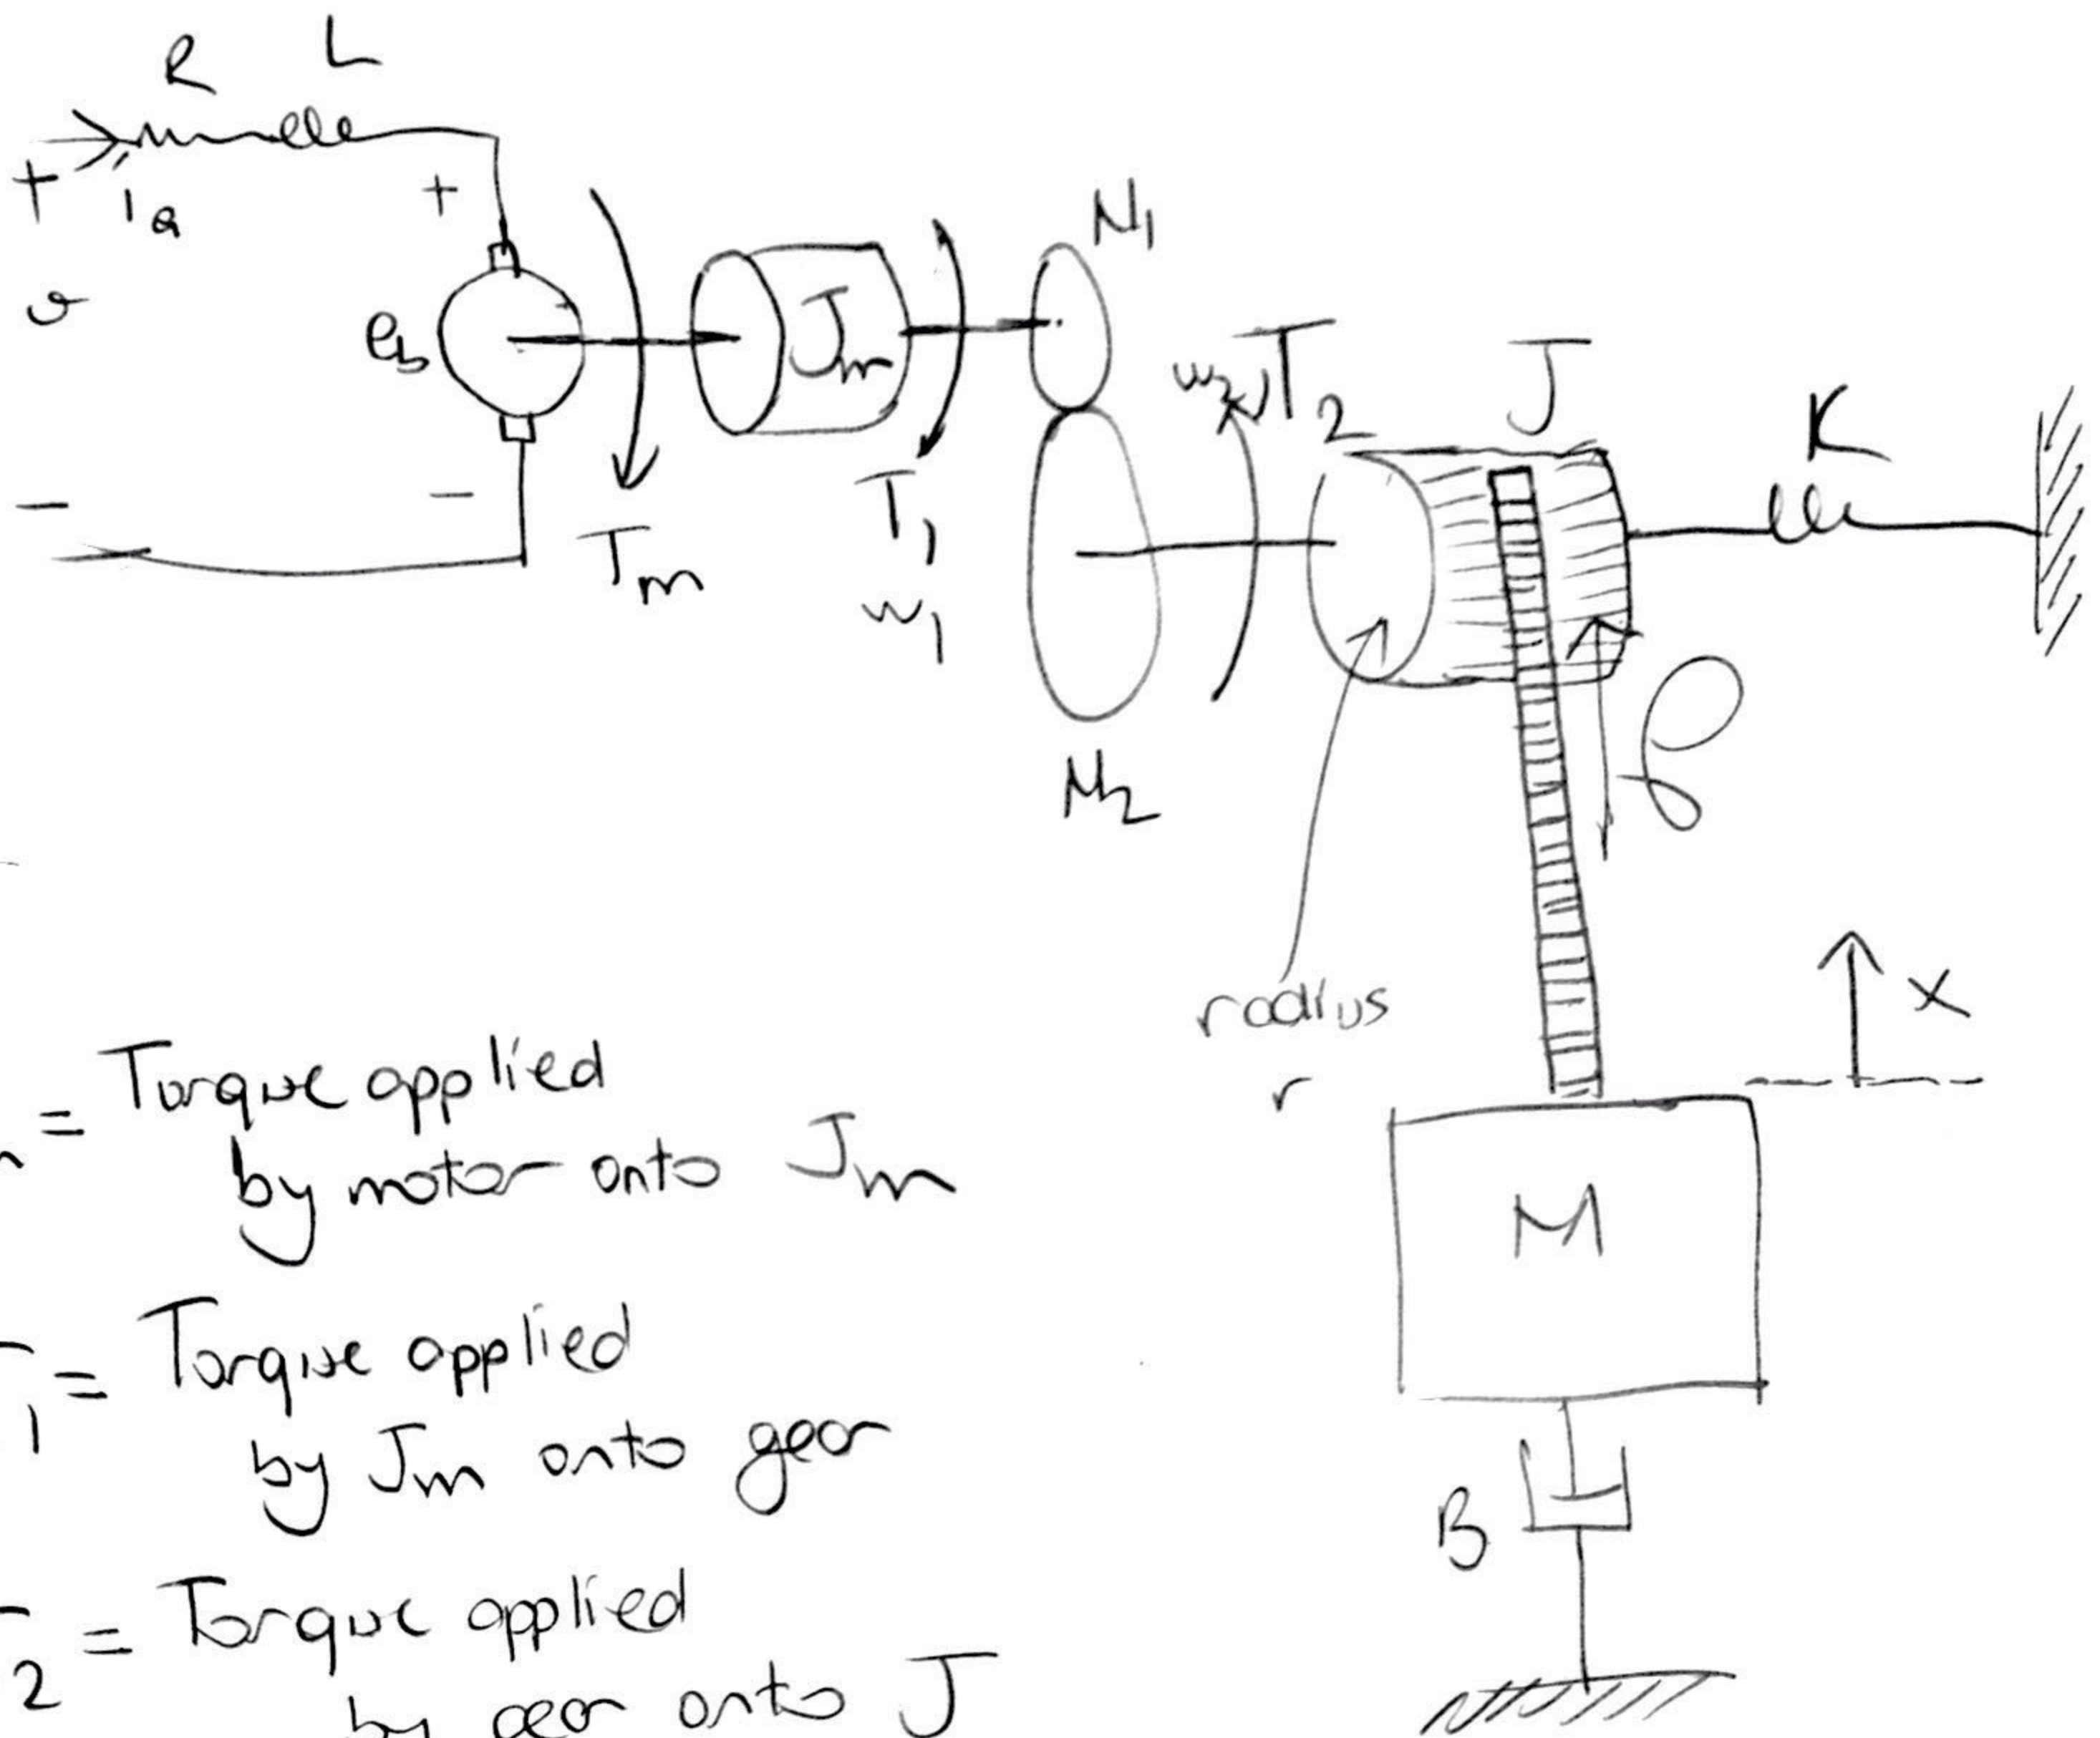 R L
+ i a
+
v
e b
-
-
T m
J m
T 1
w 1
N 1
N 2
w 2 T 2
J
K
f
radius
r
x
M
B
= Torque applied
by motor onto J m
1 = Torque applied
by J m onto gear
2 = Torque applied
by gear onto J